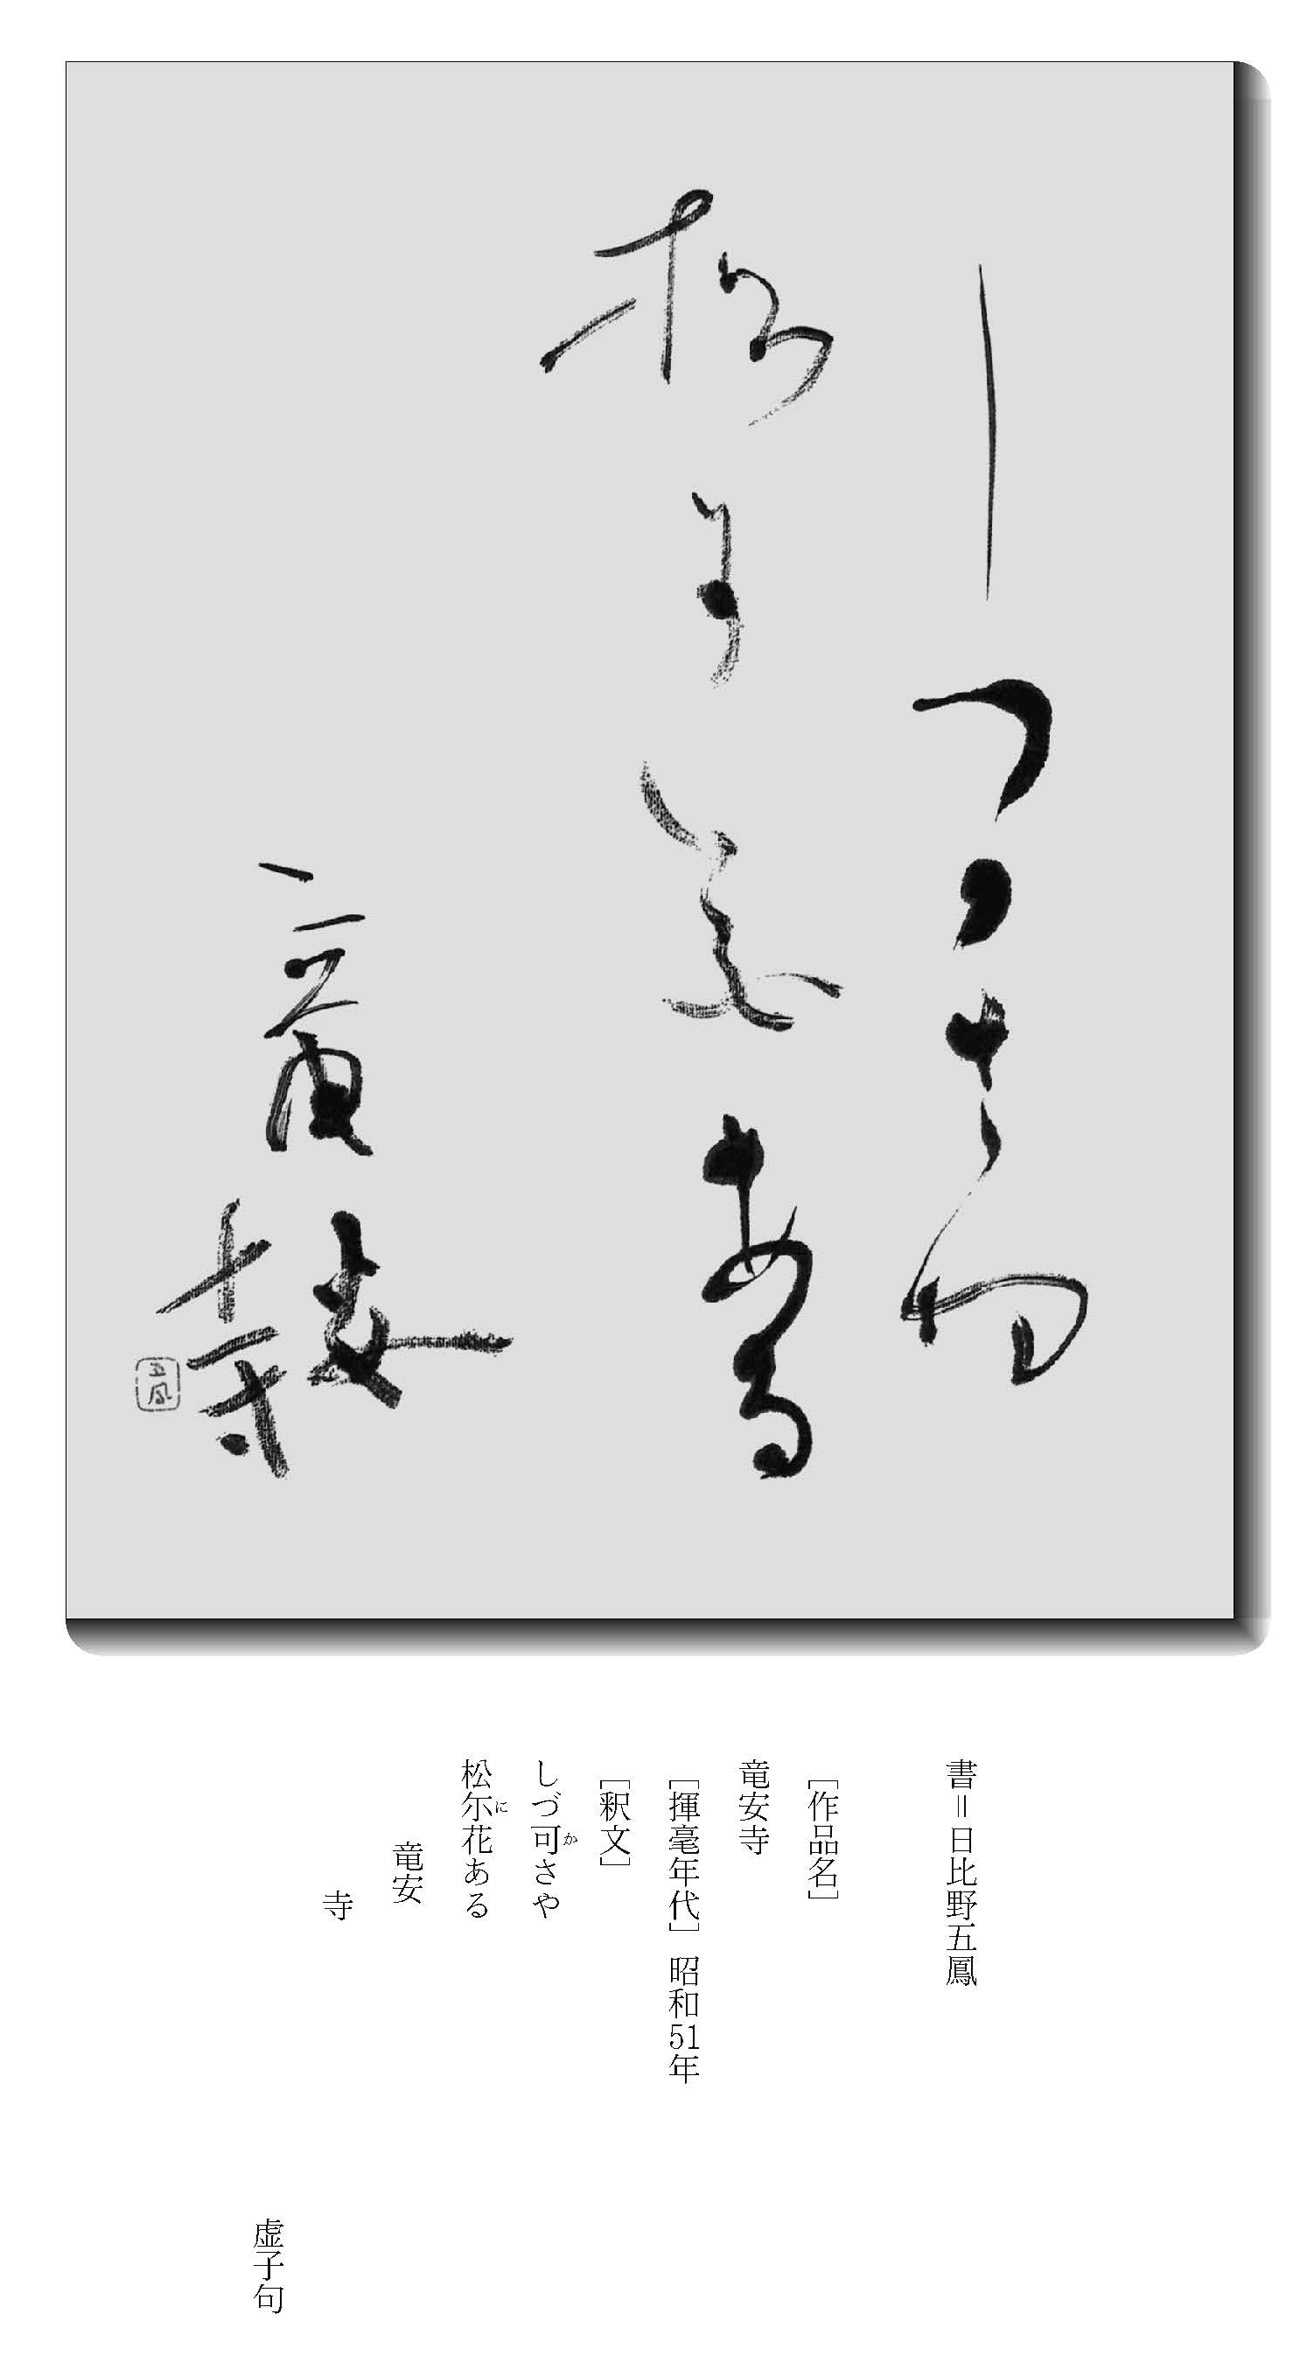 しつ可さや
松尓花ある
竜安
寺
五鳳
書＝日比野五鳳
［作品名］
竜安寺
［揮毫年代］昭和51年
［釈文］
しづ可さや
か
松尓花ある
に
竜安
寺
虚子句